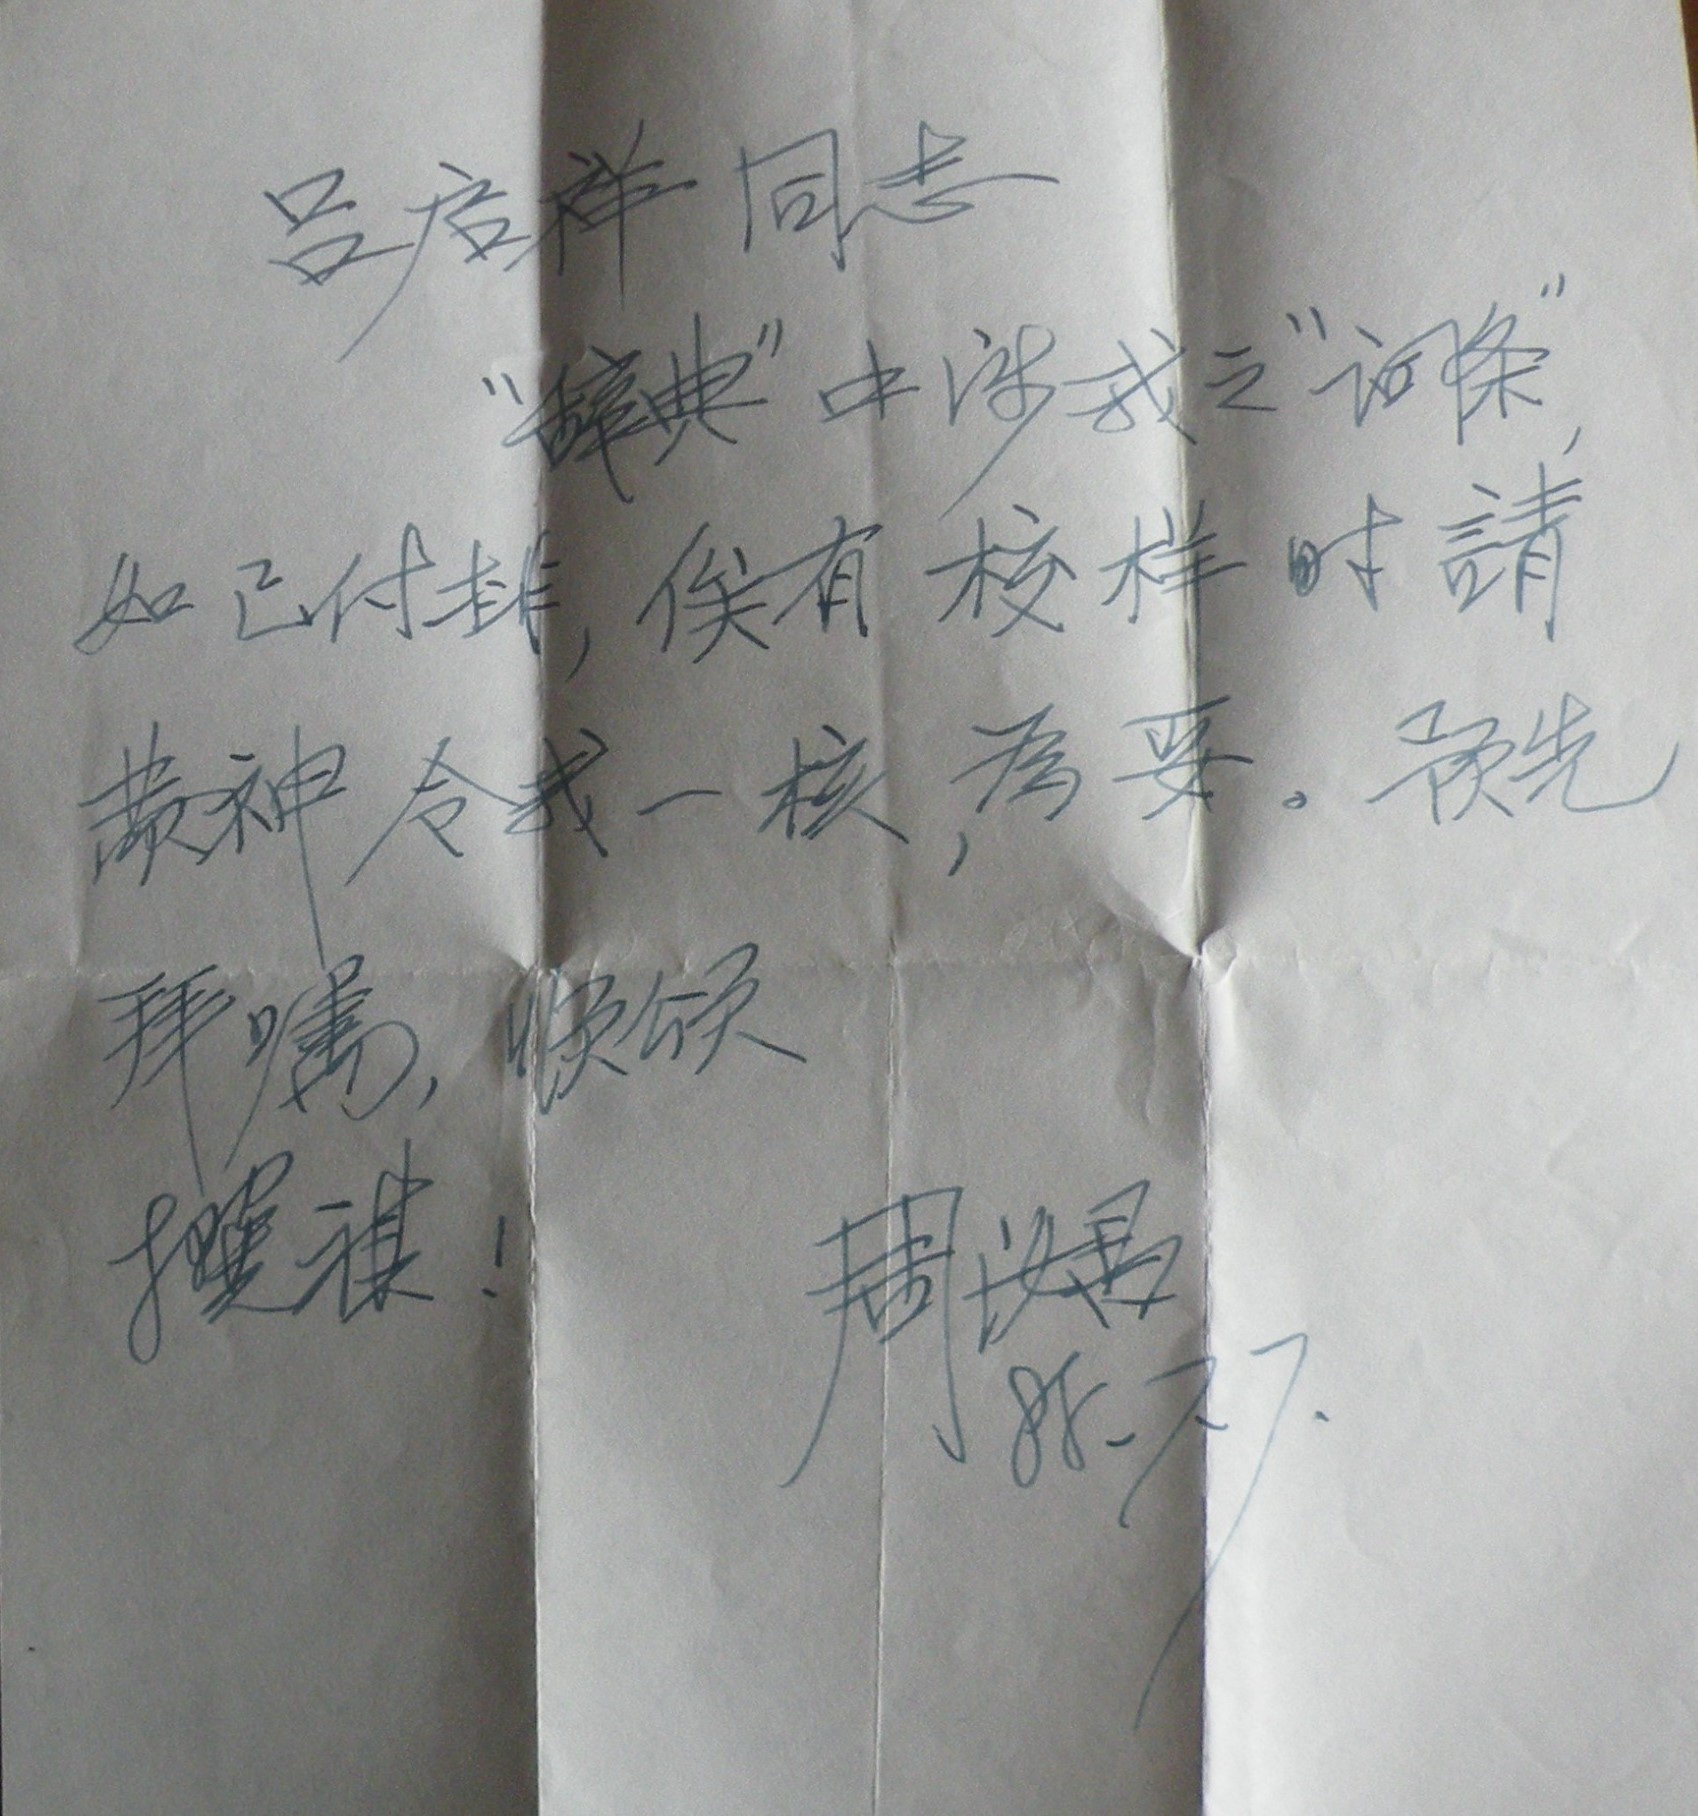 吕启祥同志
“辞典”中涉我之“词条”,
如已付排,俟有校样时請
费神令我一核,为要。预先
拜嘱,顺颂
撰祺!
周汝昌
85.7.7.